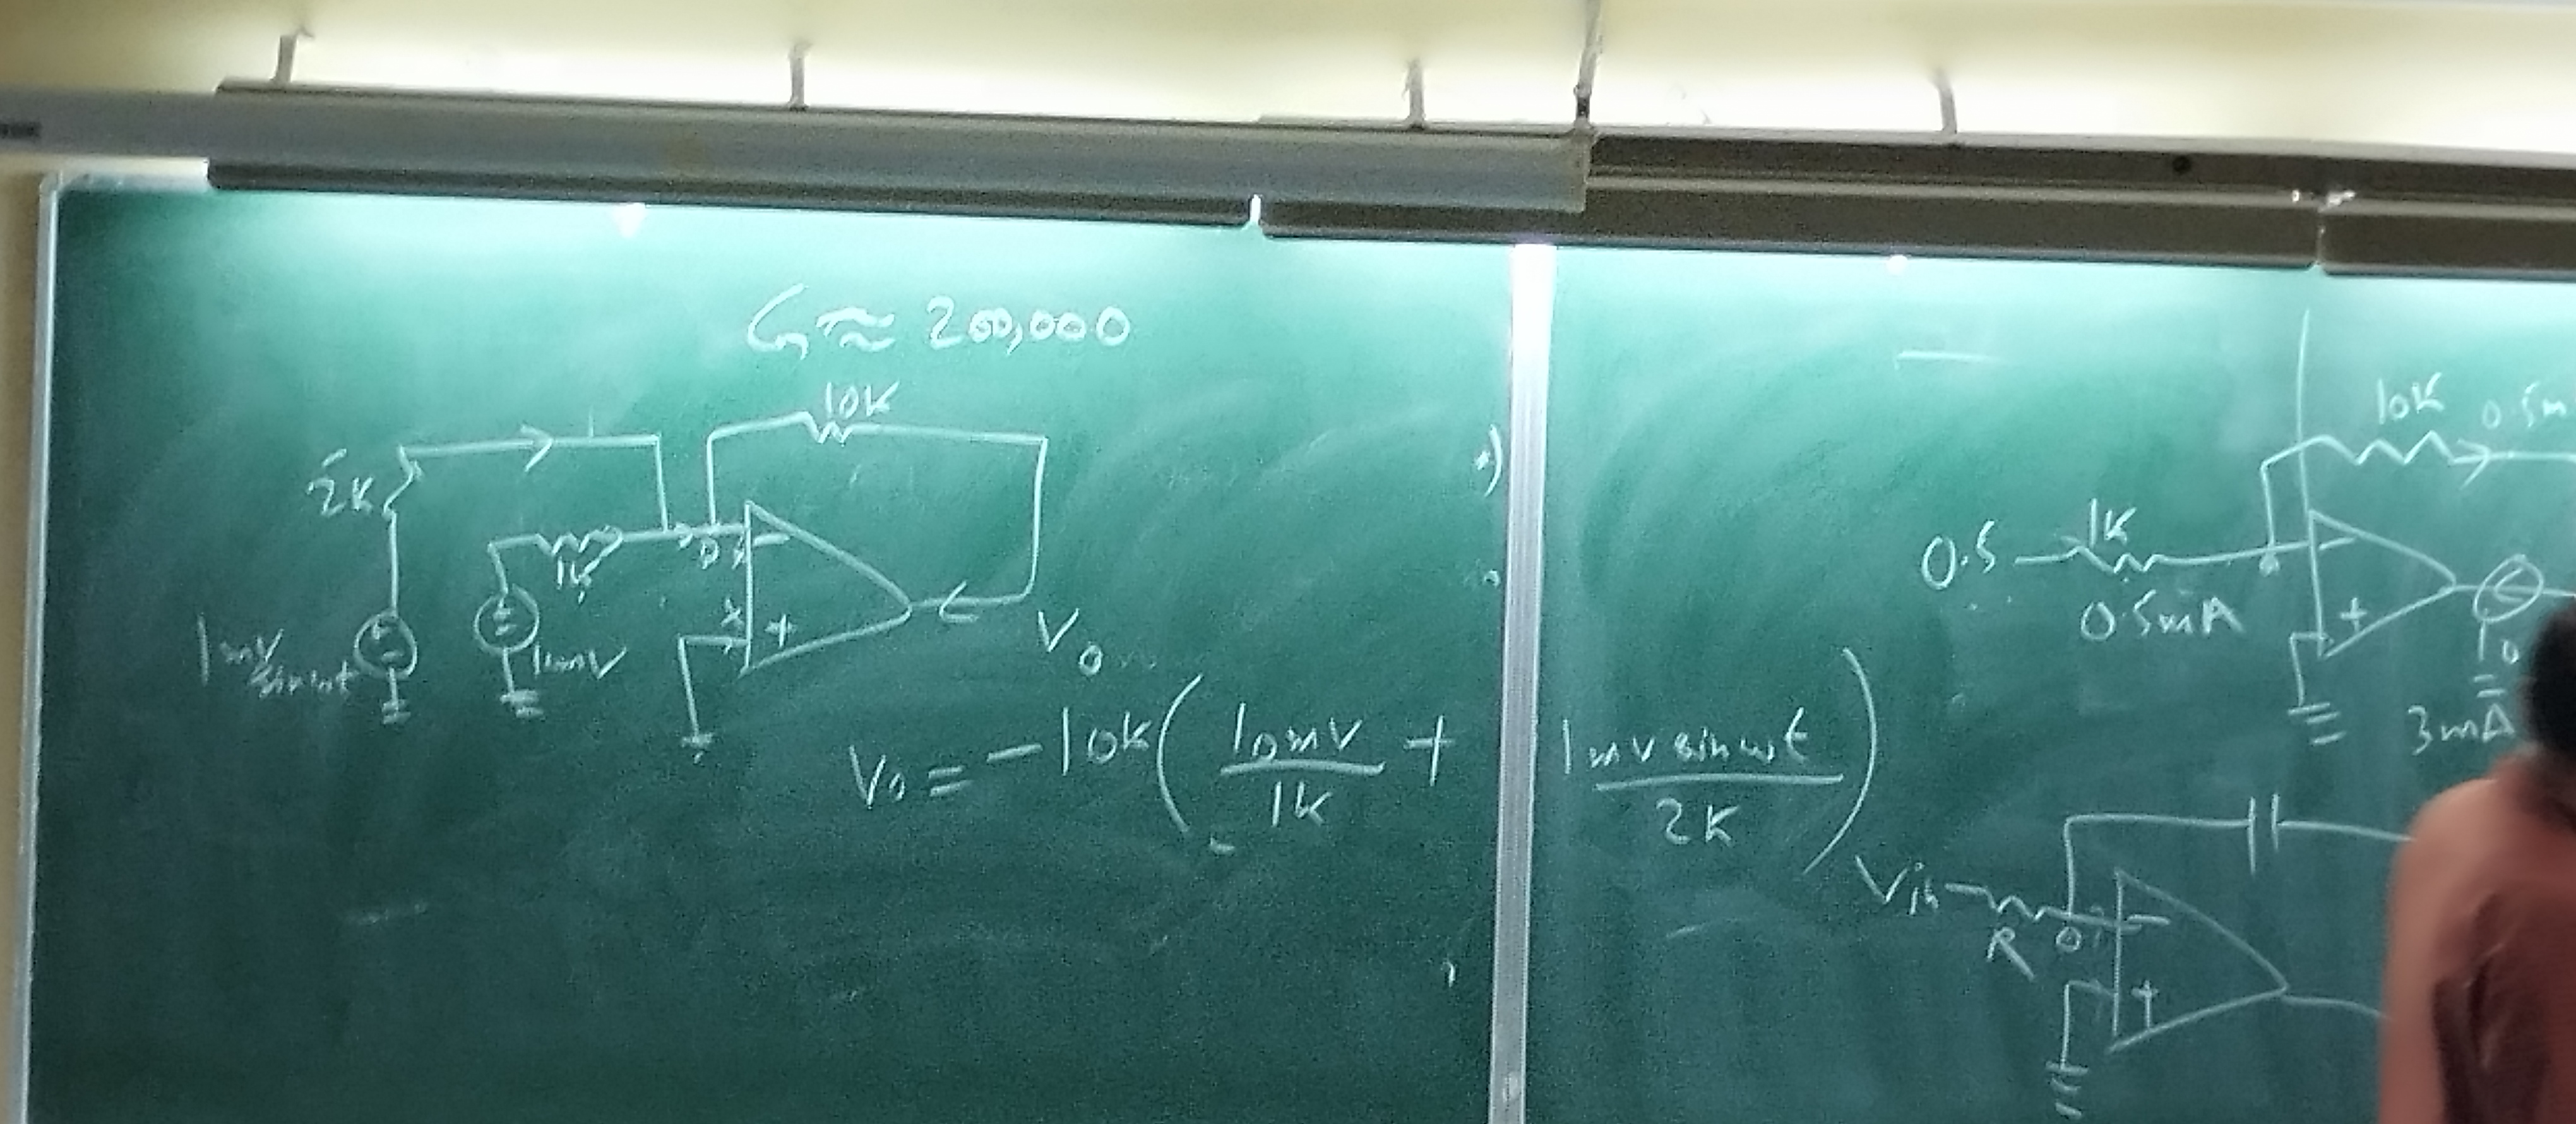 G ≈ 200,000
10K
2K
1K
0
-
+
1mV
sinωt
10mV
Vo
Vo = -10K ( 10mV / 1K + 1mV sinωt / 2K )
10K 0.5m
0.5
1K
0.5mA
-
+
3mA
Vin
R
0
-
+